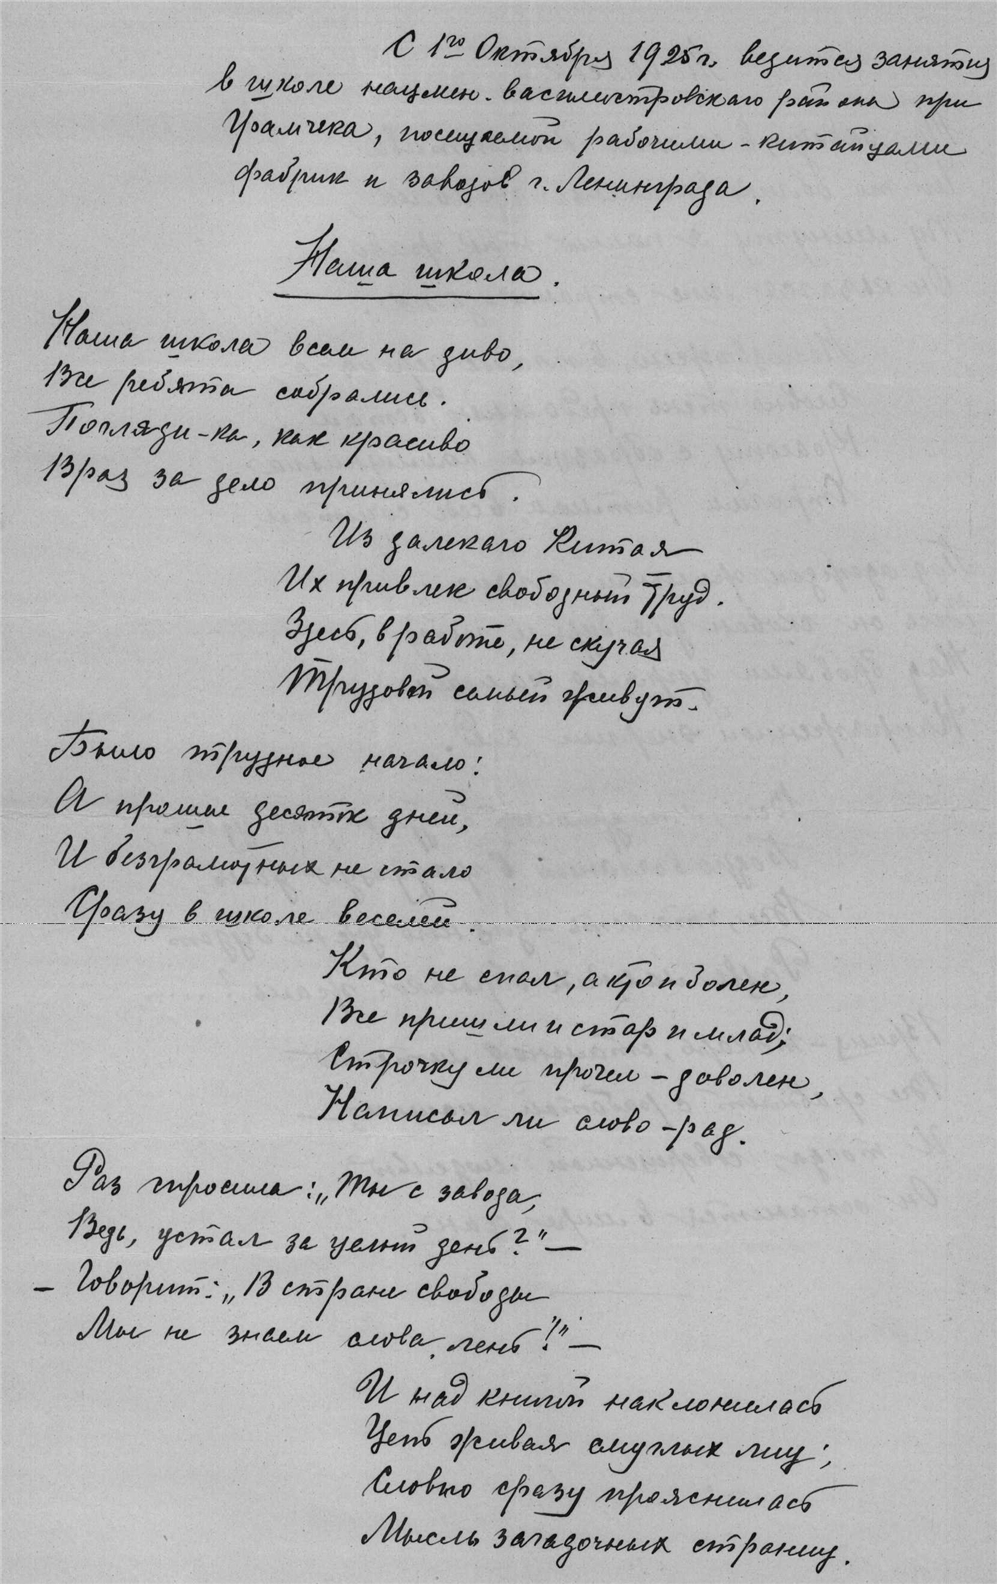 С 1го Октября 1925 г. ведутся занятия
в школе нацмен. василеостровского района при
Грамчека, посещаемой рабочими-китайцами
фабрик и заводов г. Ленинграда.
Наша школа.
Наша школа всем на диво,
Все ребята собрались.
Погляди-ка, как красиво
Враз за дело принялись.
Из далекаго Китая
Их привлек свободный труд.
Здесь, в работе, не скучая
Трудовой семьей живут.
Было трудное начало:
А прошел десяток дней,
И безграмотных не стало
Сразу в школе веселей.
Кто не спал, а кто и болен,
Все пришли и стар и млад;
Строчку ли прочел – доволен,
Написал ли слово – рад.
Раз спросила: „Ты с завода,
Ведь, устал за целый день?" —
– Говорит: „В стране свободы
Мы не знаем слова „лень"!" —
И над книгой наклонилась
Цепь живая смуглых лиц;
Словно сразу прояснилась
Мысль загадочных страниц.